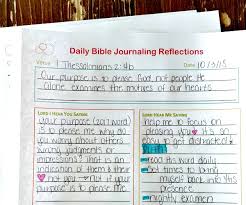 Daily Bible Journaling Reflections
Verse 1 Thessalonians 2:4b Date 10/3/15
Our purpose is to please God not people He
alone examines the motives of our hearts
LORD I HEAR YOU SAYING
your purpose (2017 word)
is to please me why do
you worry about others
wrong judgments or
impressions? That is an
indication of them & their
not you if your
purpose is to please me
LORD HEAR ME SAYING
help me to focus on
pleasing you it's so
easy to get distracted
read his word daily
set times to lying
myself back into his
presence
nightly examen